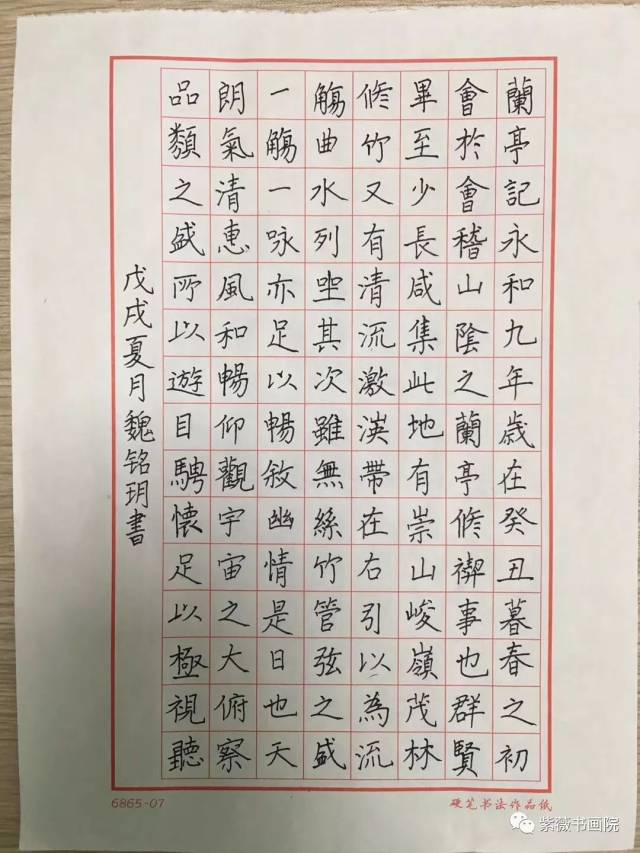 蘭亭記永和九年歲在癸丑暮春之初
會於會稽山陰之蘭亭修禊事也群賢
畢至少長咸集此地有崇山峻嶺茂林
修竹又有清流激渶帶在右引以為流
觴曲水列坐其次雖無絲竹管弦之盛
一觴一咏亦足以暢敘幽情是日也天
朗氣清惠風和暢仰觀宇宙之大俯察
品類之盛所以遊目騁懷足以極視聽
戊戌夏月魏铭玥書
6865-07
硬笔书法作品纸
紫薇书画院